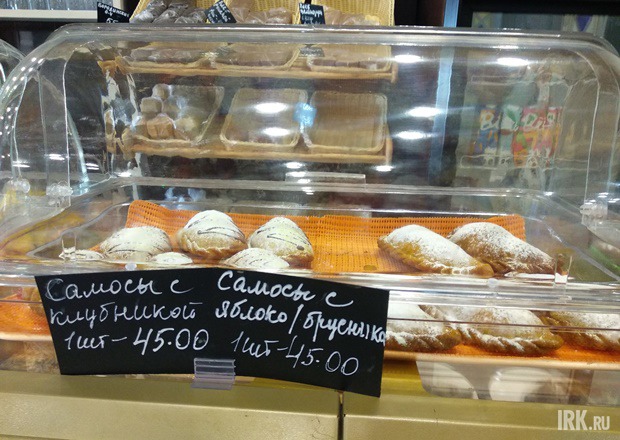 Самосы с
клубникой
1шт-45.00
Самосы с
яблоко/брусника
1шт-45.00
IRK.ru